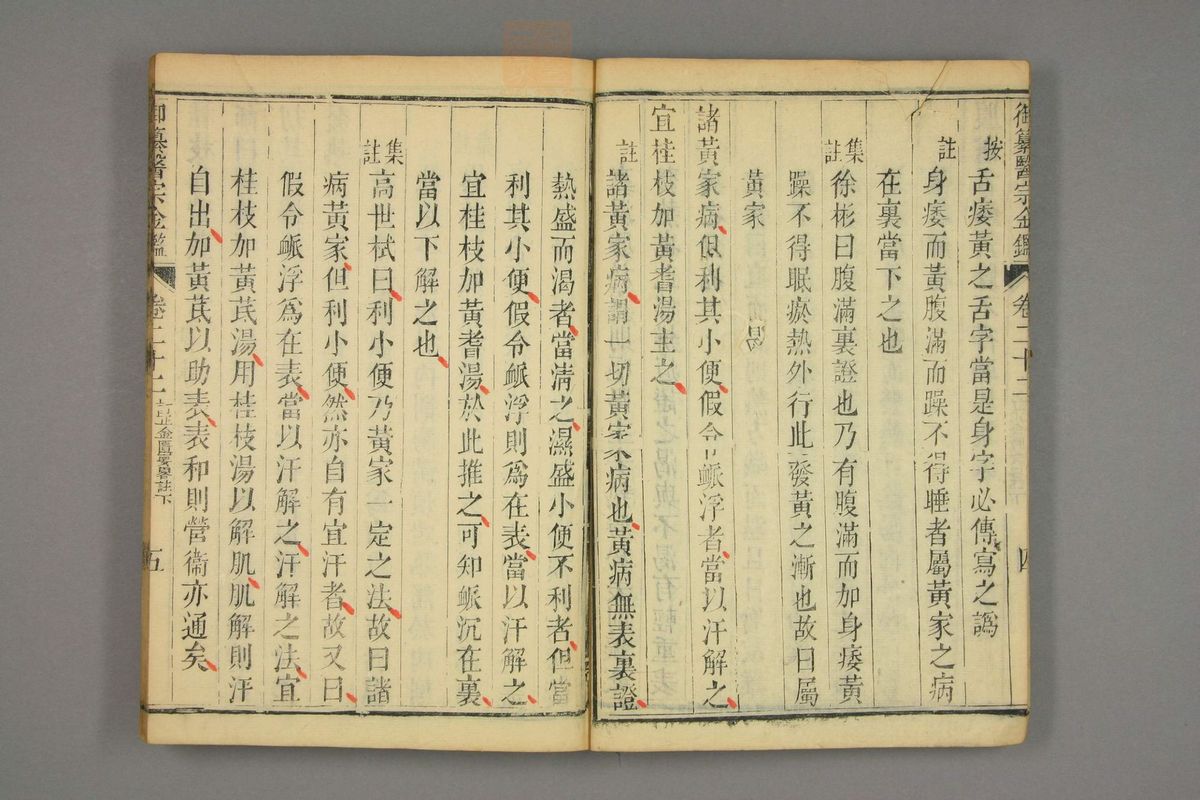 御纂醫宗金鑑 卷二十二 四
按 舌痿黃之舌字當是身字必傳寫之譌
註 身痿而黃腹滿而躁不得睡者屬黃家之病
在裏當下之也
集註 徐彬曰腹滿裏證也乃有腹滿而加身痿黃
躁不得眠瘀熱外行此發黃之漸也故曰屬
黃家
諸黃家病但利其小便假令脈浮者當以汗解之
宜桂枝加黃耆湯主之
註 諸黃家病謂一切黃家病也黃病無表裏證
熱盛而渴者當清之濕盛小便不利者但當
利其小便假令脈浮則爲在表當以汗解之
宜桂枝加黃耆湯於此推之可知脈沉在裏
當以下解之也
集註 高世栻曰利小便乃黃家一定之法故曰諸
病黃家但利小便然亦自有宜汗者故又曰
假令脈浮爲在表當以汗解之汗解之法宜
桂枝加黃芪湯用桂枝湯以解肌肌解則汗
自出加黃芪以助表表和則營衞亦通矣
御纂醫宗金鑑 卷二十二 訂正金匱要畧註下 五